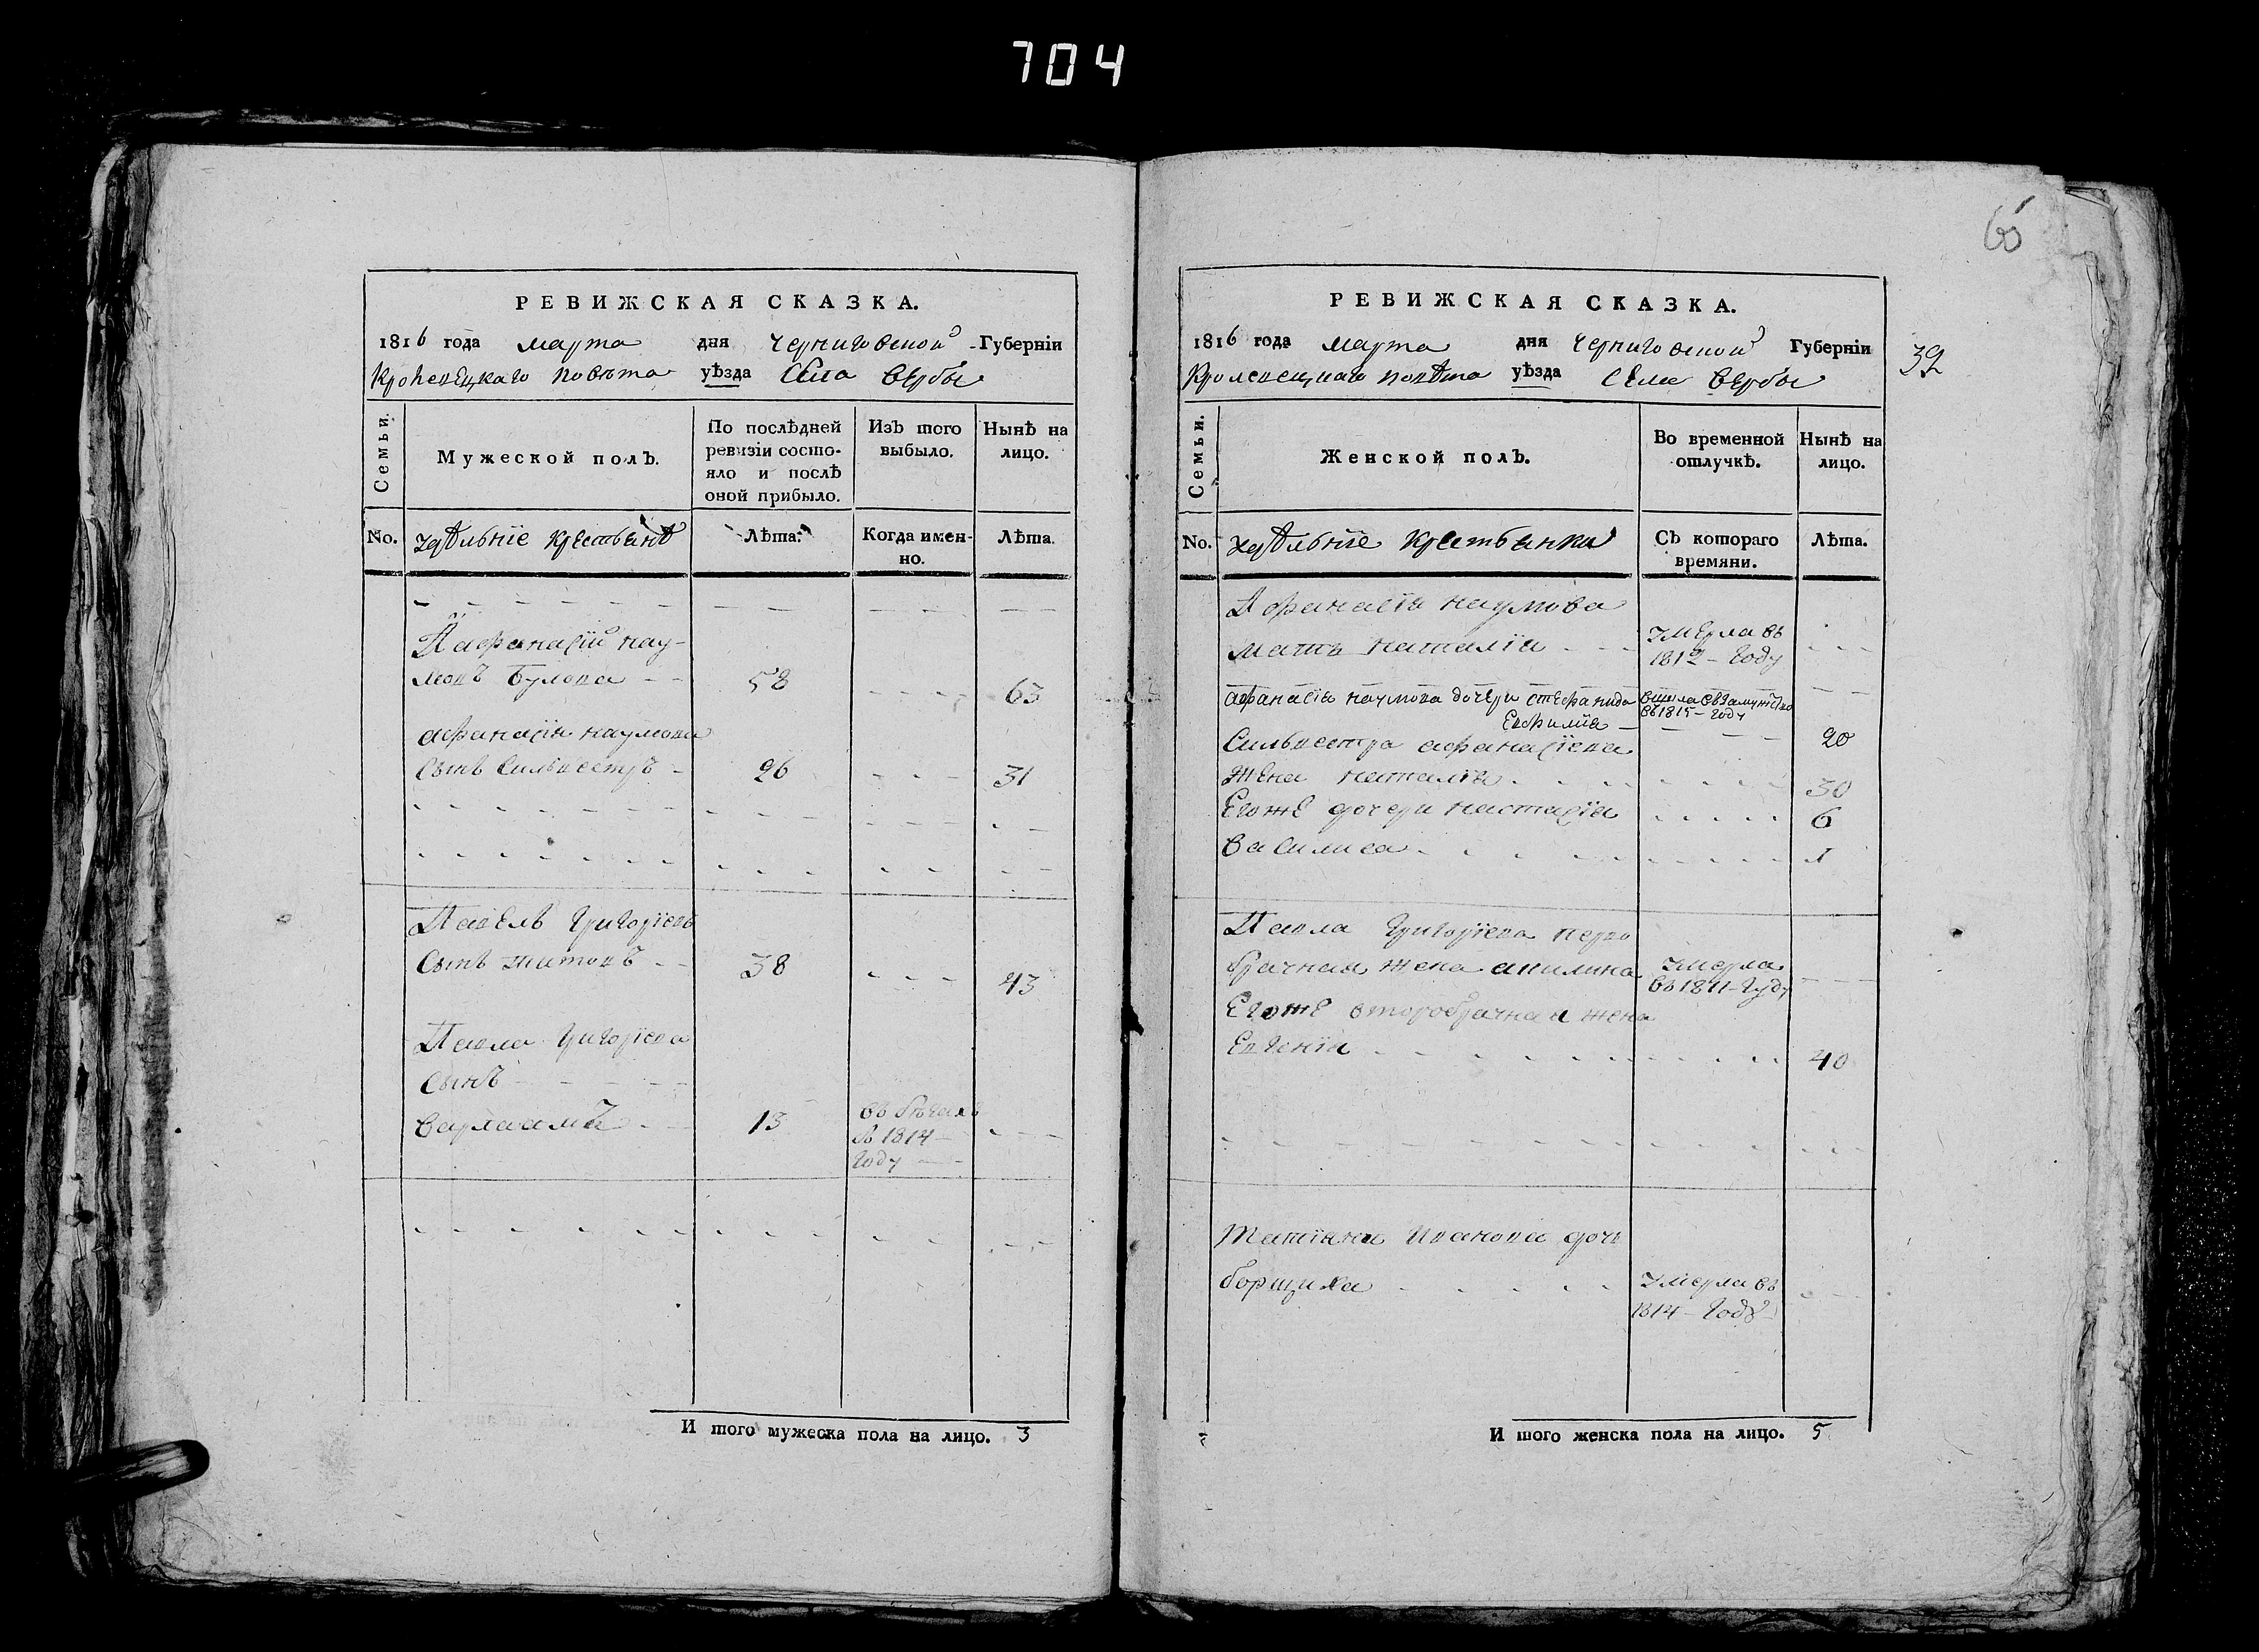 704
65
РЕВИЖСКАЯ СКАЗКА.
1816 года марта дня Черниговской Губерніи
Кролевецкаго повѣта уѣзда Села Вербы
Семьи.
Мужеской полъ.
По послѣдней
ревизіи состо-
яло и послѣ
оной прибыло.
Изъ того
выбыло.
Нынѣ на
лицо.
No.
удѣльніе крестьянѣ
Лѣта.
Когда имен-
но.
Лѣта.
Афанасій нау-
мовъ Булова 58 63
афанасія наумова
сынъ Сильвестръ 26 31
Павелъ Григоріевъ
сынъ Титовъ 38 43
Павла Григоріева
сынъ
Варлаамъ 13
въ 1814
году
И того мужеска пола на лицо. 3
РЕВИЖСКАЯ СКАЗКА.
1816 года марта дня Черниговской Губерніи
Кролевецкаго повѣта уѣзда Села Вербы
32
Семьи.
Женской полъ.
Во временной
отлучкѣ.
Нынѣ на
лицо.
No.
удѣльніе крестьянки
Съ котораго
времяни.
Лѣта.
Афанасія наумова
мать наталія умерла въ
1812 - году
афанасія наумова дочери стефанида вишла въ замужство
въ 1815 - году
Евфимія 20
Сильвестра афанасіева
жена наталія 30
Егоже дочери настасія 6
Василиса 1
Павла Григоріева перво
брачная жена акилина умерла
въ 1811 - году
Егоже второбрачная жена
Евгенія 40
Татіяна Иванова дочь
борщика умерла въ
1814 - году
И того женска пола на лицо. 5